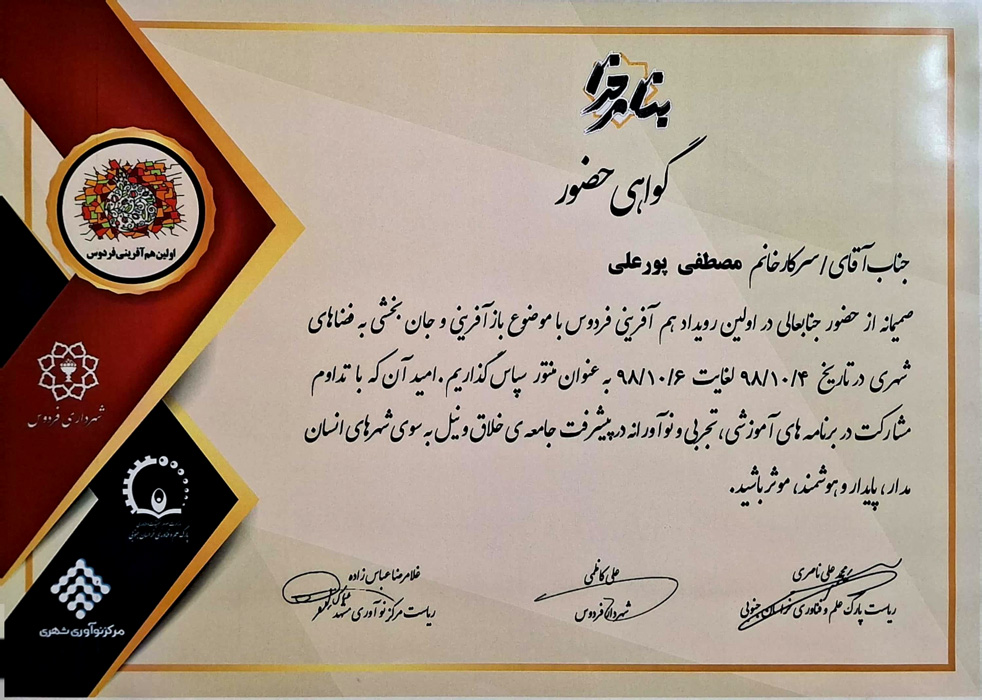 بنام خدا
گواهی حضور
جناب آقای / سرکار خانم مصطفی پورعلی
صمیمانه از حضور جنابعالی در اولین رویداد هم آفرینی فردوس با موضوع بازآفرینی و جان بخشی به فضاهای
شهری در تاریخ ۹۸/۱۰/۴ لغایت ۹۸/۱۰/۶ به عنوان منتور سپاس گذاریم. امید آن که با تداوم
مشارکت در برنامه های آموزشی، تجربی و نوآورانه در پیشرفت جامعه ی خلاق و نیل به سوی شهرهای انسان
مدار، پایدار و هوشمند، موثر باشید.
محمد علی ناصری
ریاست پارک علم و فناوری خراسان جنوبی
علی کاظمی
شهردار فردوس
غلامرضا عباس زاده
ریاست مرکز نوآوری مشهد
اولین هم‌آفرینی فردوس
شهرداری فردوس
پارک علم و فناوری خراسان جنوبی
مرکز نوآوری شهری